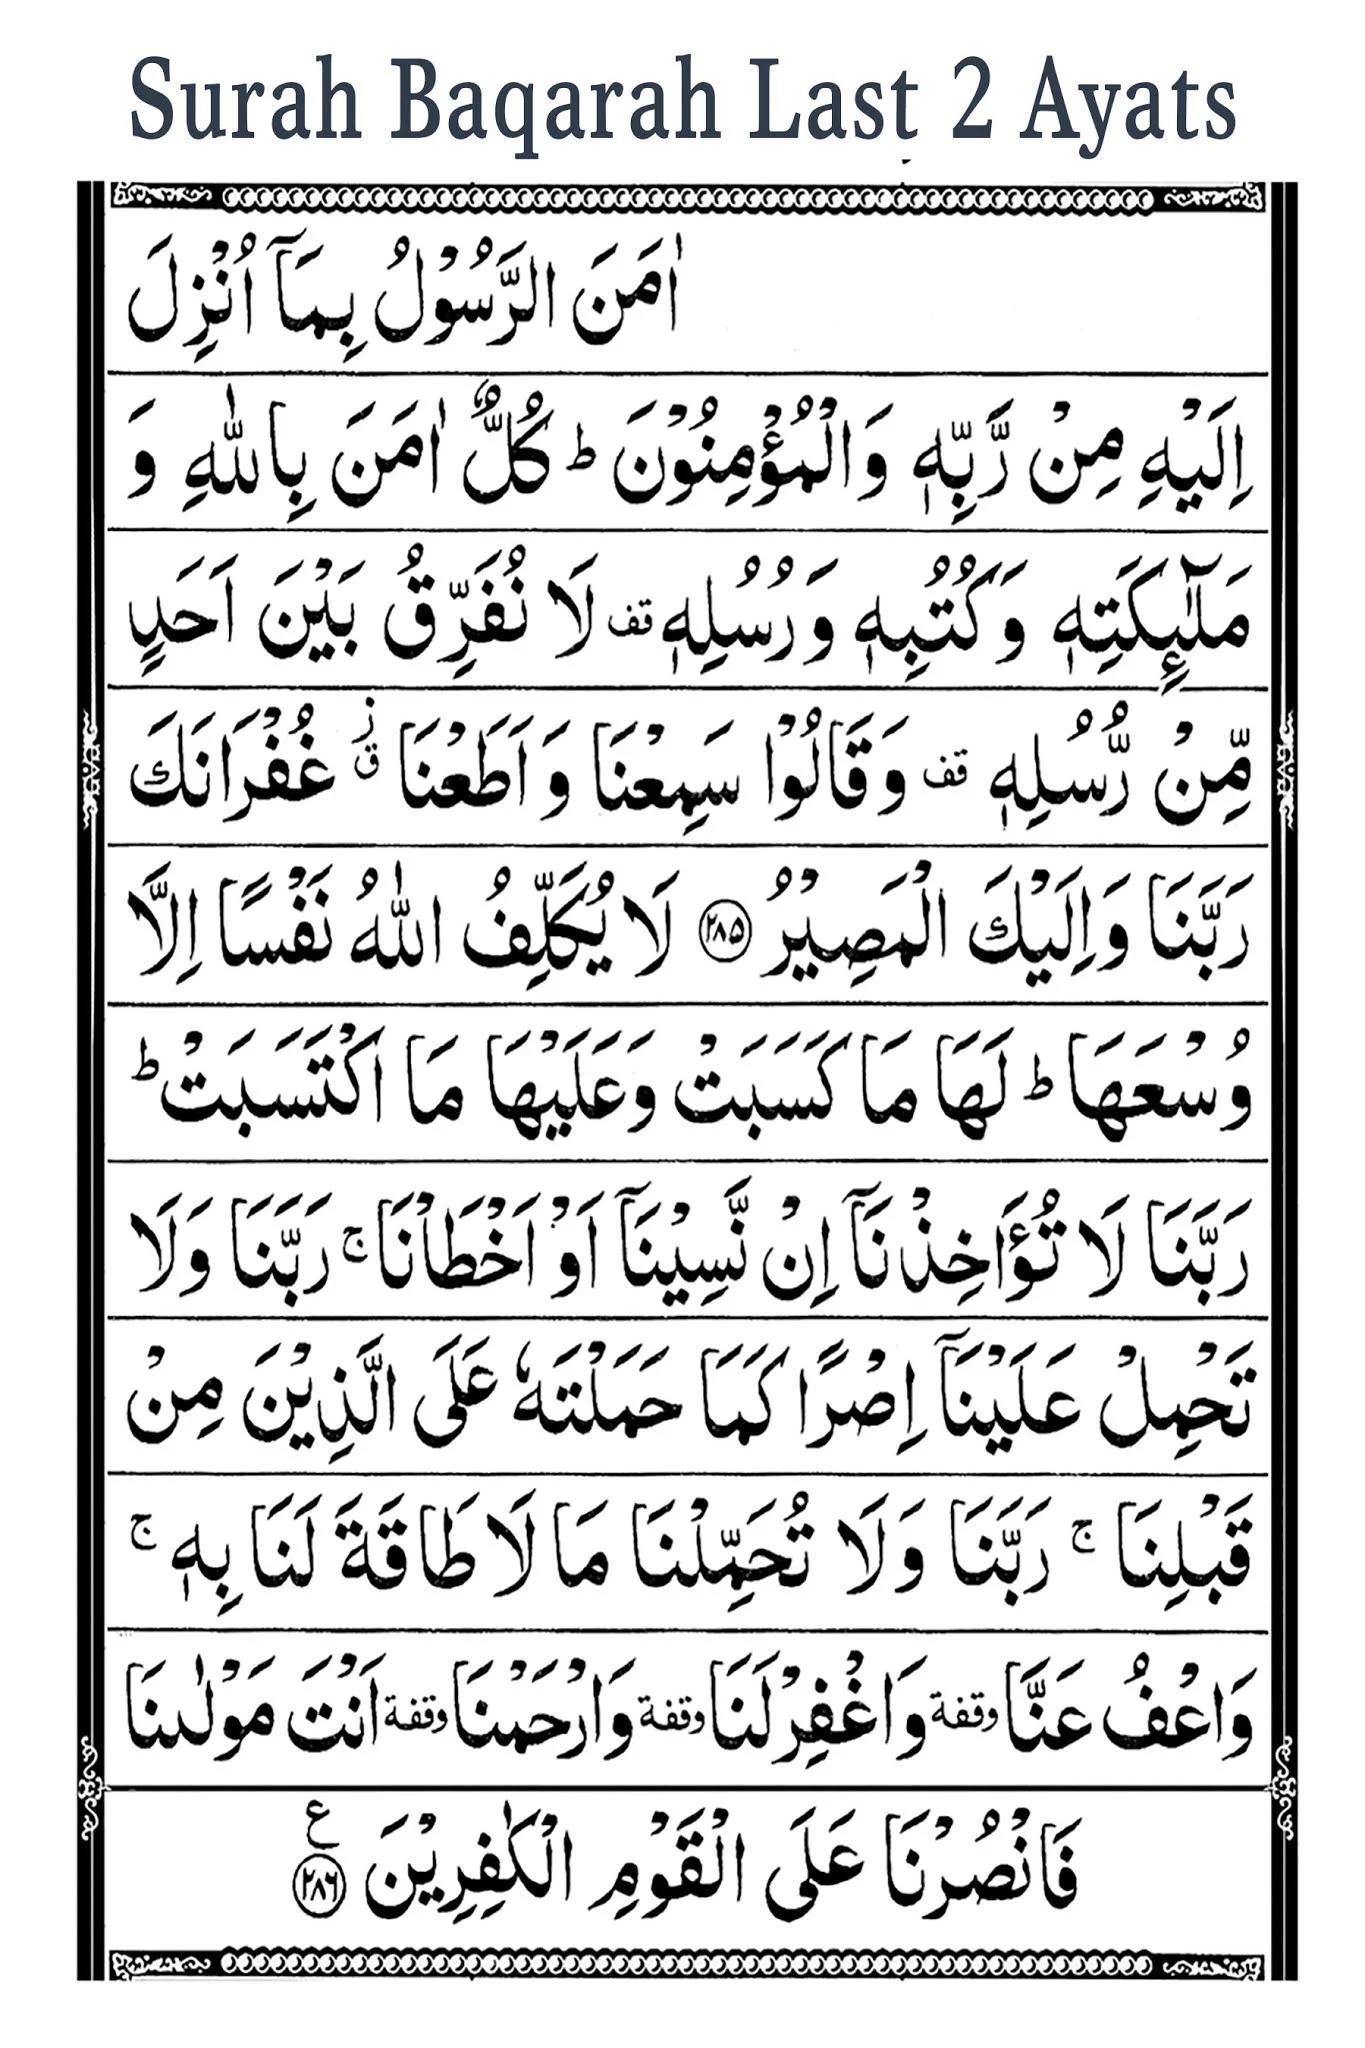 Surah Baqarah Last 2 Ayats
اٰمَنَ الرَّسُوْلُ بِمَاۤ اُنْزِلَ
اِلَيْهِ مِنْ رَّبِّهٖ وَالْمُؤْمِنُوْنَ ؕ كُلٌّ اٰمَنَ بِاللّٰهِ وَ
مَلٰٓئِكَتِهٖ وَكُتُبِهٖ وَرُسُلِهٖ قف لَا نُفَرِّقُ بَيْنَ اَحَدٍ
مِّنْ رُّسُلِهٖ قف وَقَالُوْا سَمِعْنَا وَاَطَعْنَا ز ق غُفْرَانَكَ
رَبَّنَا وَاِلَيْكَ الْمَصِيْرُ ﴿۲۸۵﴾ لَا يُكَلِّفُ اللّٰهُ نَفْسًا اِلَّا
وُسْعَهَا ؕ لَهَا مَا كَسَبَتْ وَعَلَيْهَا مَا اكْتَسَبَتْ ؕ
رَبَّنَا لَا تُؤَاخِذْنَاۤ اِنْ نَّسِيْنَاۤ اَوْ اَخْطَاْنَا ج رَبَّنَا وَلَا
تَحْمِلْ عَلَيْنَاۤ اِصْرًا كَمَا حَمَلْتَهٗ عَلَى الَّذِيْنَ مِنْ
قَبْلِنَا ج رَبَّنَا وَلَا تُحَمِّلْنَا مَا لَا طَاقَةَ لَنَا بِهٖ ج
وَاعْفُ عَنَّا وقفة وَاغْفِرْ لَنَا وقفة وَارْحَمْنَا وقفة اَنْتَ مَوْلٰىنَا
فَانْصُرْنَا عَلَى الْقَوْمِ الْكٰفِرِيْنَ ﴿۲۸۶﴾ ع